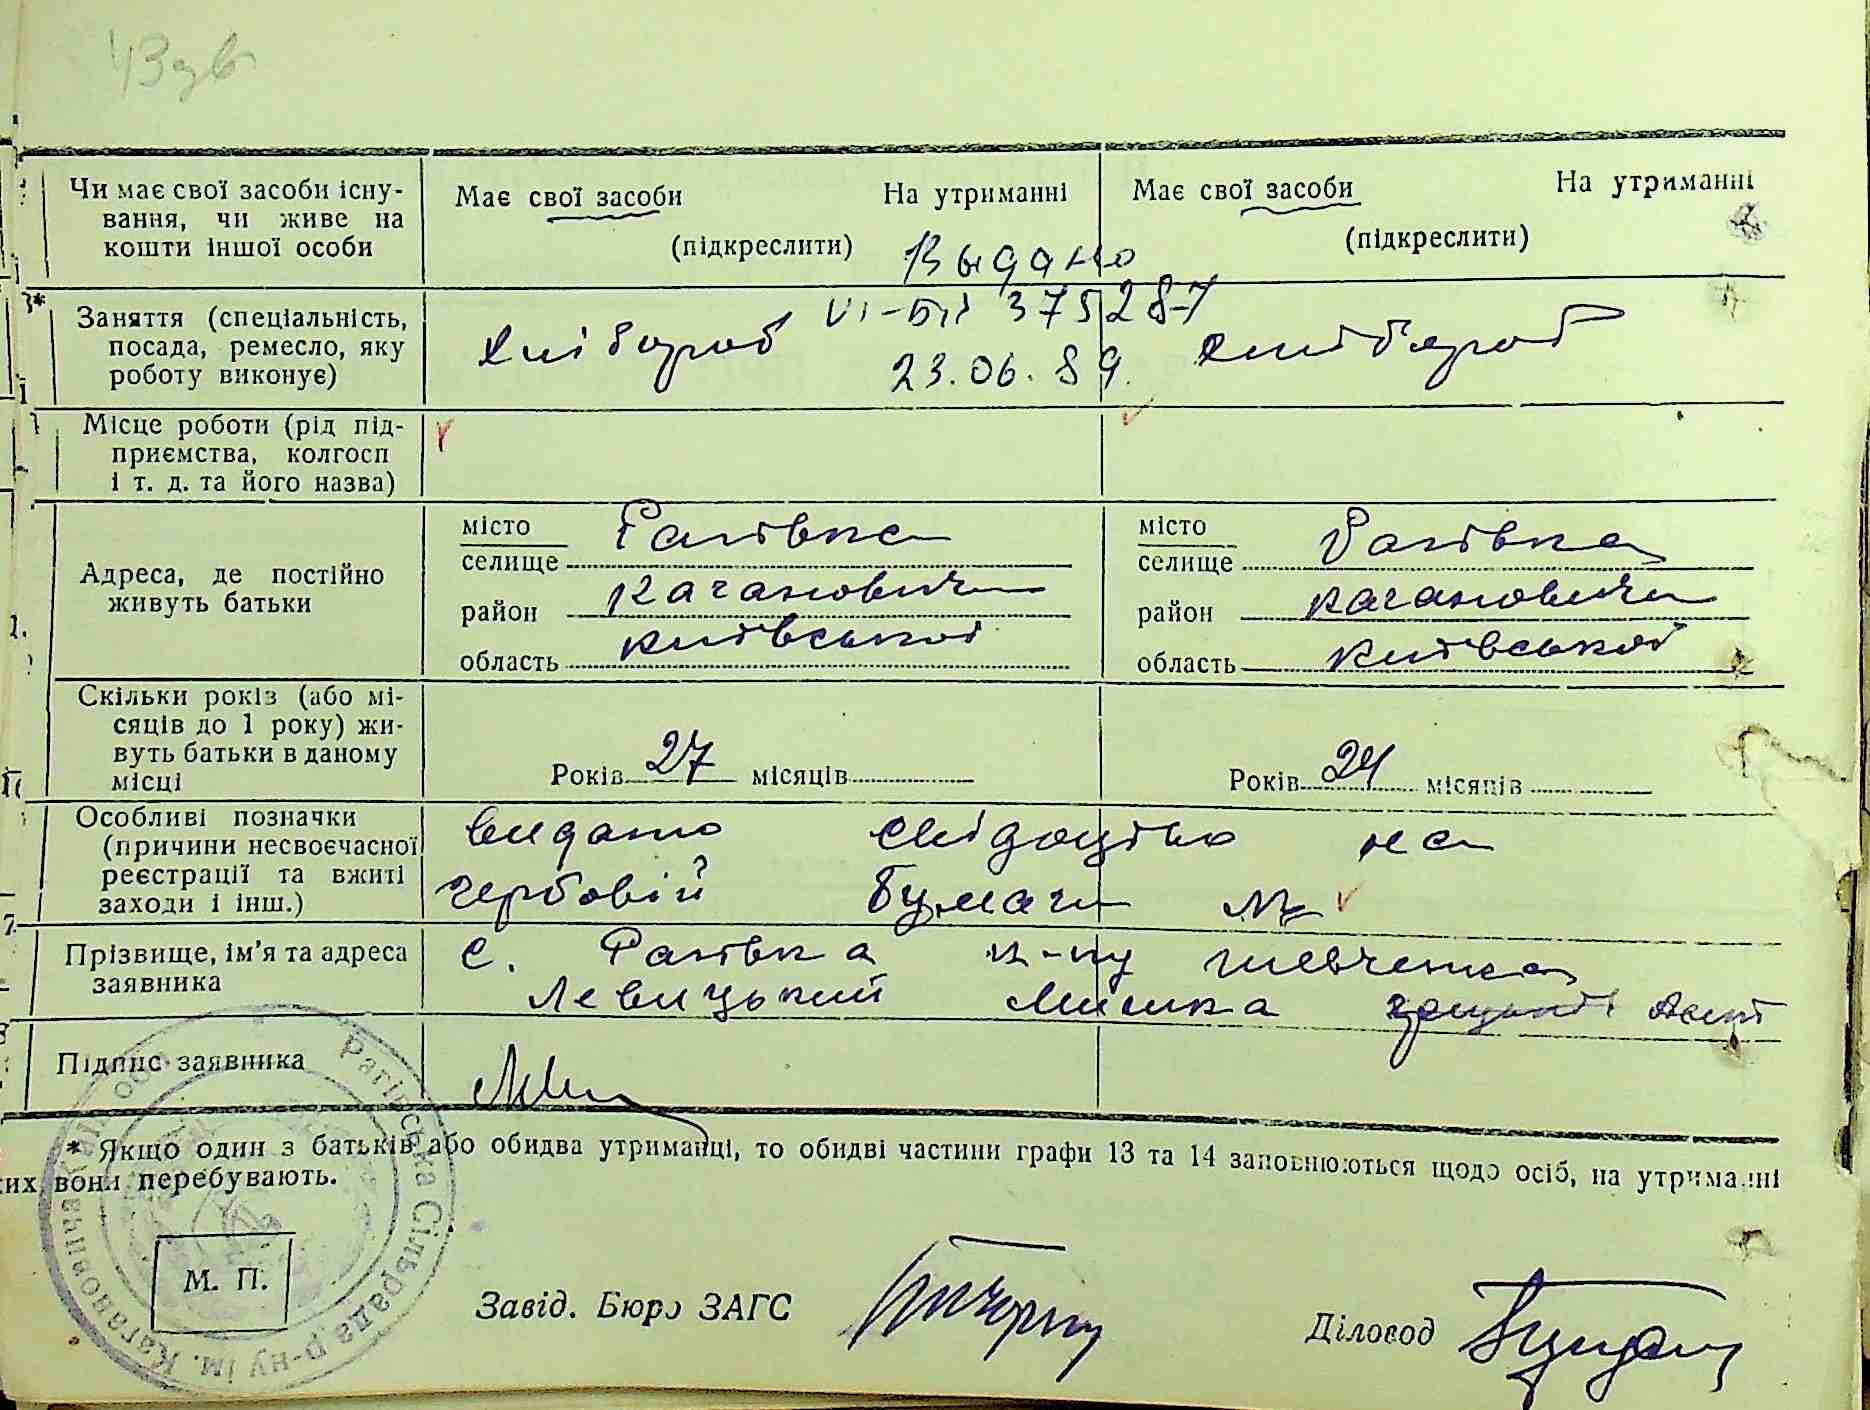 Чи має свої засоби існу-
вання, чи живе на
кошти іншої особи
Має свої засоби На утриманні
(підкреслити)
Має свої засоби На утриманні
(підкреслити)
Выдано
VI-БК 375287
23.06.89.
Заняття (спеціальність,
посада, ремесло, яку
роботу виконує)
хлібороб
хлібороб
Місце роботи (рід під-
приємства, колгосп
і т. д. та його назва)
Адреса, де постійно
живуть батьки
місто
селище
Рагівка
район Кагановичи
область Київської
місто
селище
Рагівка
район Кагановичи
область Київської
Скільки років (або мі-
сяців до 1 року) жи-
вуть батьки в даному
місці
Років 27 місяців
Років 24 місяців
Особливі позначки
(причини несвоєчасної
реєстрації та вжиті
заходи і інш.)
видано свідоцтво на
гербовій бумаги №
Прізвище, ім'я та адреса
заявника
с. Рагівка к-пу Шевченка
Левицький Мишка
Підпис заявника
* Якщо один з батьків або обидва утриманці, то обидві частини графи 13 та 14 заповнюються щодо осіб, на утриманні
их вони перебувають.
М. П.
Завід. Бюро ЗАГС
Діловод
Рагівська Сільрада р-ну ім. Кагановича Київ. обл.